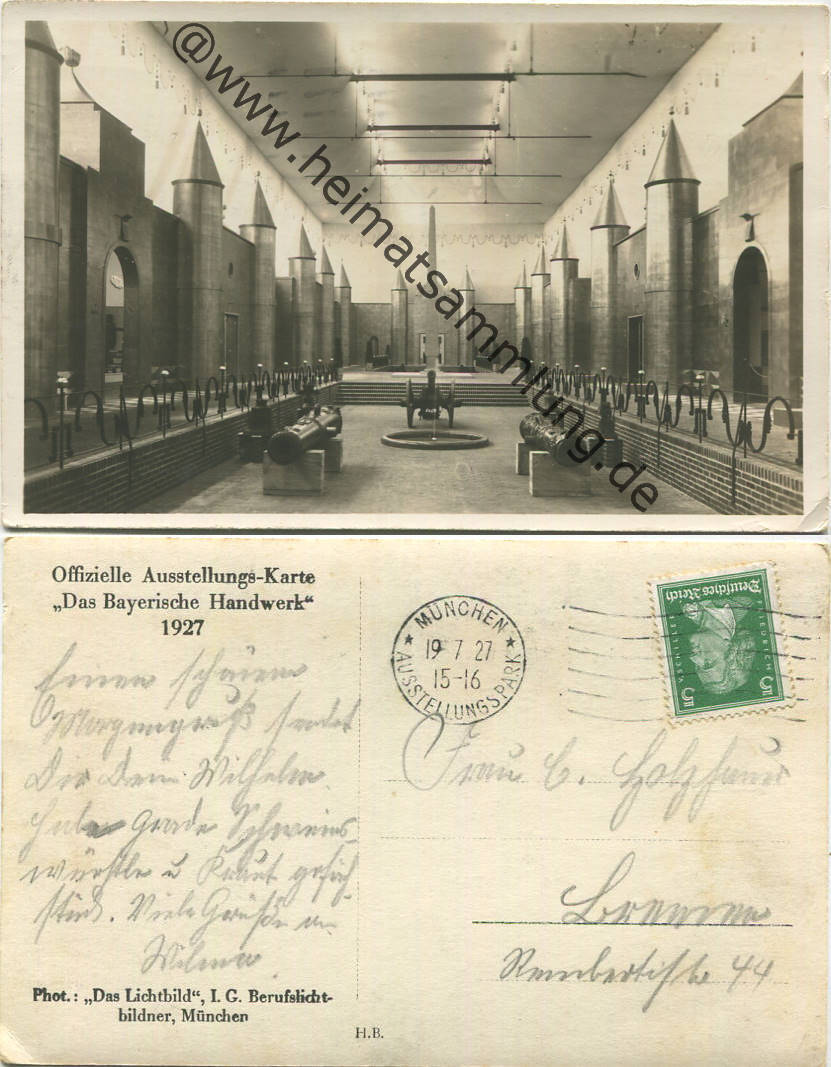 @www.heimatsammlung.de
Offizielle Ausstellungs-Karte
„Das Bayerische Handwerk“
1927
Einen schönen
Morgengruß sendet
Dir Dein Wilhelm.
Habe grade Schweins-
würstle u Kraut gefrüh-
stückt. Viele Grüße an
Wilma
Phot.: „Das Lichtbild“, I. G. Berufslicht-
bildner, München
H.B.
★ MÜNCHEN ★
19 7 27
15-16
AUSSTELLUNGSPARK
Deutsches Reich
FRIEDRICH
V. SCHILLER
5 5
Frau C. Holzhauer
Bremen
Rembertistr 44